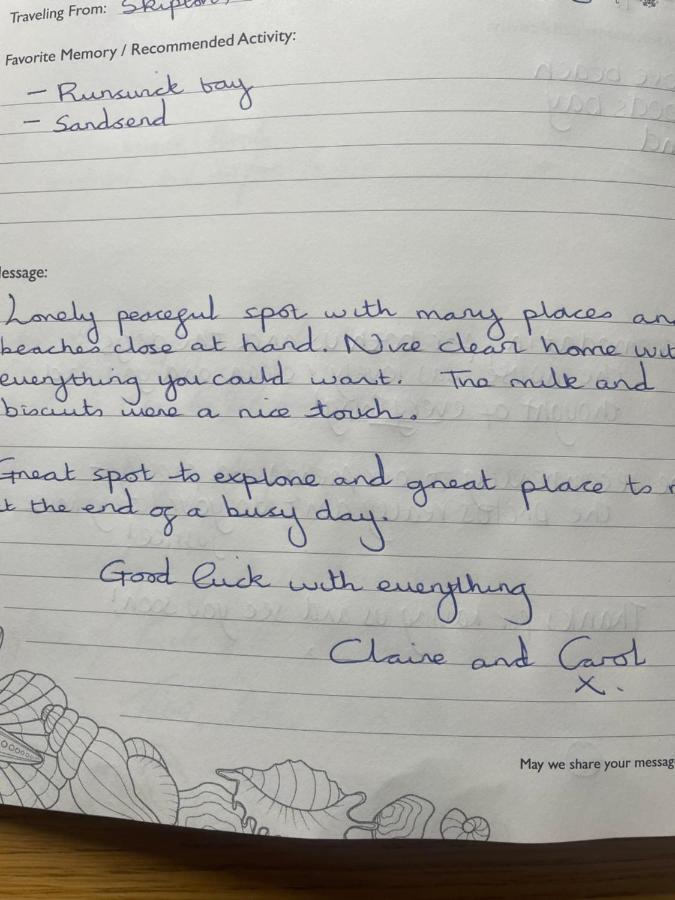 Traveling From: Skipton,
Favorite Memory / Recommended Activity:
- Runswick bay
- Sandsend
essage:
Lovely peaceful spot with many places an
beaches close at hand. Nice clean home wit
everything you could want. The milk and
biscuits were a nice touch.
Great spot to explore and great place to r
t the end of a busy day.
Good luck with everything
Claire and Carol
x.
May we share your messag